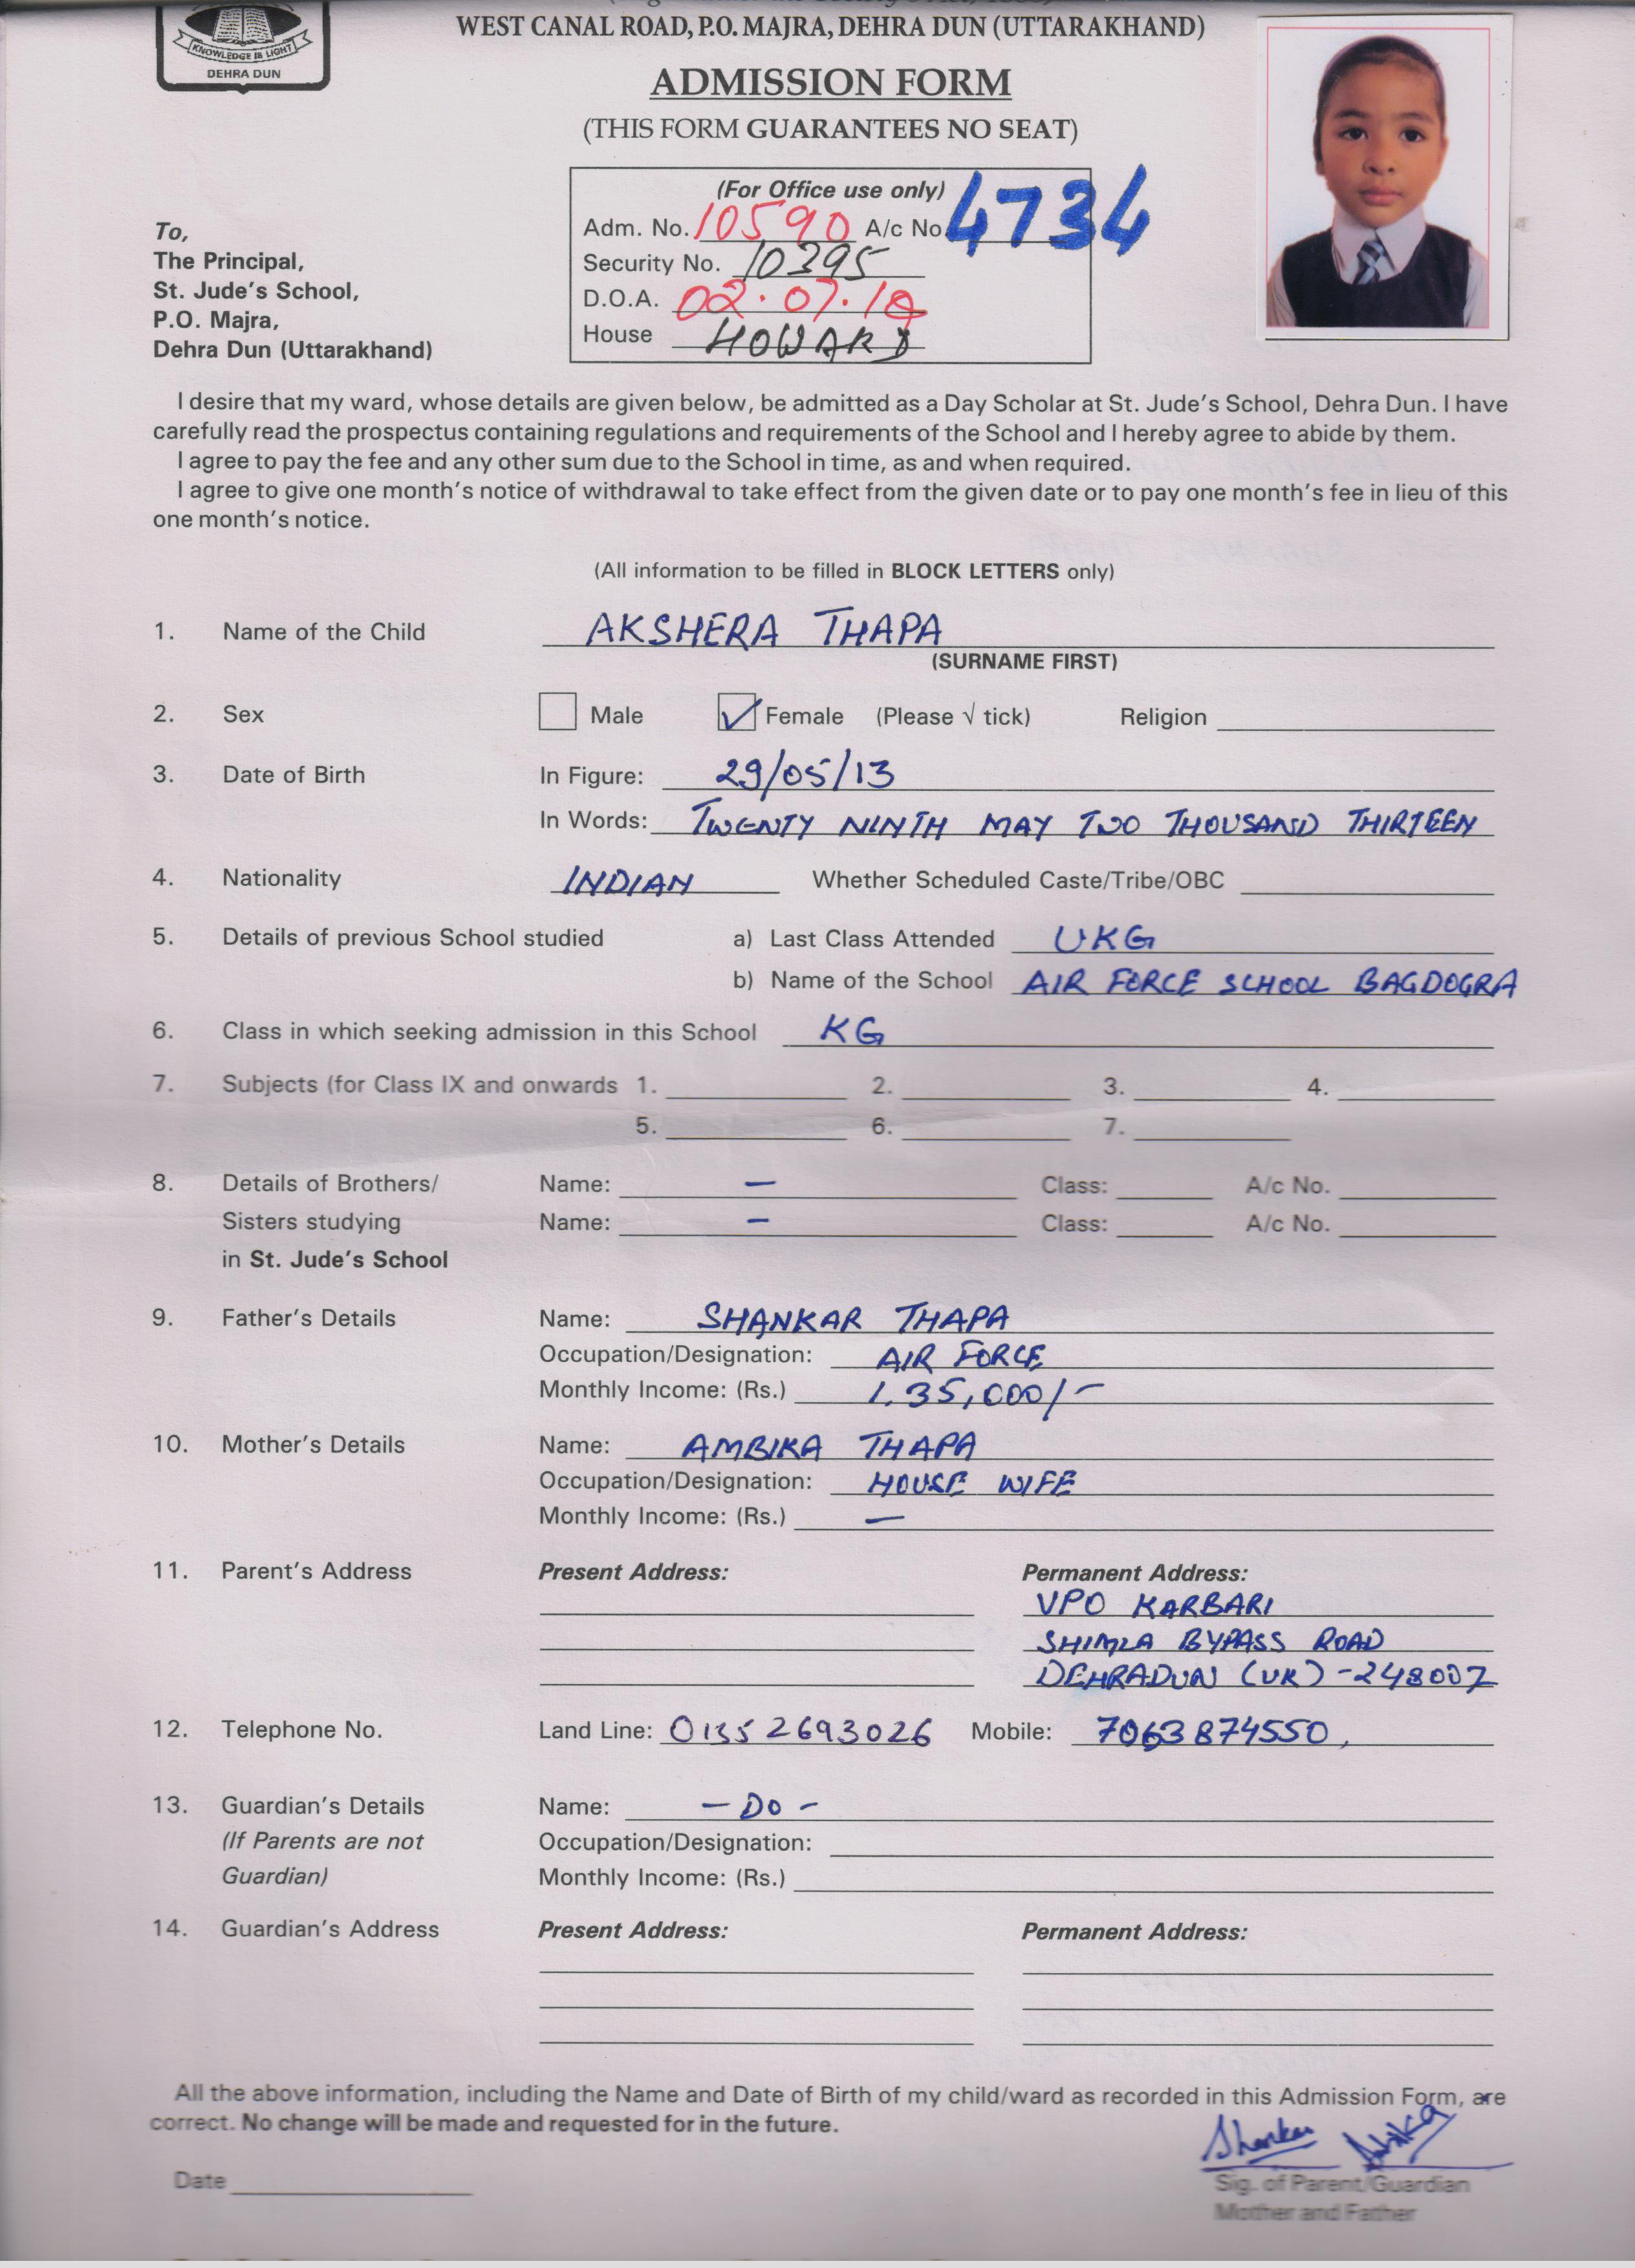 KNOWLEDGE IS LIGHT
DEHRA DUN
WEST CANAL ROAD, P.O. MAJRA, DEHRA DUN (UTTARAKHAND)
ADMISSION FORM
(THIS FORM GUARANTEES NO SEAT)
(For Office use only)
Adm. No. 10590 A/c No. 4734
Security No. 10395
D.O.A. 02.07.18
House HOWARD
To,
The Principal,
St. Jude's School,
P.O. Majra,
Dehra Dun (Uttarakhand)
I desire that my ward, whose details are given below, be admitted as a Day Scholar at St. Jude's School, Dehra Dun. I have
carefully read the prospectus containing regulations and requirements of the School and I hereby agree to abide by them.
I agree to pay the fee and any other sum due to the School in time, as and when required.
I agree to give one month's notice of withdrawal to take effect from the given date or to pay one month's fee in lieu of this
one month's notice.
(All information to be filled in BLOCK LETTERS only)
1. Name of the Child AKSHERA THAPA
(SURNAME FIRST)
2. Sex Male ✓ Female (Please √ tick) Religion
3. Date of Birth In Figure: 29/05/13
In Words: TWENTY NINTH MAY TWO THOUSAND THIRTEEN
4. Nationality INDIAN Whether Scheduled Caste/Tribe/OBC
5. Details of previous School studied a) Last Class Attended UKG
b) Name of the School AIR FORCE SCHOOL BAGDOGRA
6. Class in which seeking admission in this School KG
7. Subjects (for Class IX and onwards 1. 2. 3. 4.
5. 6. 7.
8. Details of Brothers/ Name: — Class: A/c No.
Sisters studying Name: — Class: A/c No.
in St. Jude's School
9. Father's Details Name: SHANKAR THAPA
Occupation/Designation: AIR FORCE
Monthly Income: (Rs.) 1,35,000/-
10. Mother's Details Name: AMBIKA THAPA
Occupation/Designation: HOUSE WIFE
Monthly Income: (Rs.) —
11. Parent's Address Present Address: Permanent Address:
VPO KARBARI
SHIMLA BYPASS ROAD
DEHRADUN (UK) -248007
12. Telephone No. Land Line: 01352693026 Mobile: 7063874550,
13. Guardian's Details Name: - DO -
(If Parents are not Occupation/Designation:
Guardian) Monthly Income: (Rs.)
14. Guardian's Address Present Address: Permanent Address:
All the above information, including the Name and Date of Birth of my child/ward as recorded in this Admission Form, are
correct. No change will be made and requested for in the future.
Shankar Ambika
Date Sig. of Parent/Guardian
Mother and Father